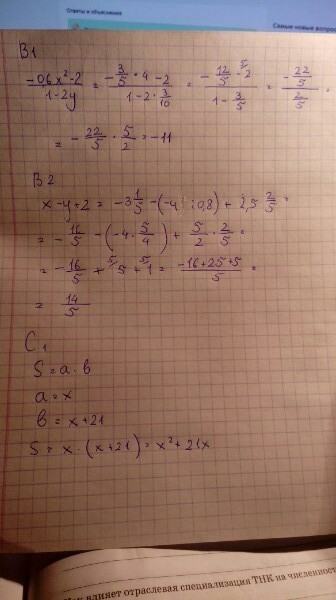 Ответы и объяснения
Самые новые вопрос
B1
(-0,6x²-2)/(1-2y) = (-3/5 · 4 - 2)/(1-2·3/10) = (-12/5 - 2)/(1-3/5) = (-22/5)/(2/5) =
= -22/5 · 5/2 = -11
B2
x-y+z = -3 1/5 - (-4 : 0,8) + 2,5 · 2/5 =
= -16/5 - (-4 · 5/4) + 5/2 · 2/5 =
= -16/5 + 5 + 1 = (-16+25+5)/5 =
= 14/5
C1
S = a · b
a = x
b = x+21
S = x · (x+21) = x²+21x
влияет отраслевая специализация ТНК на численност